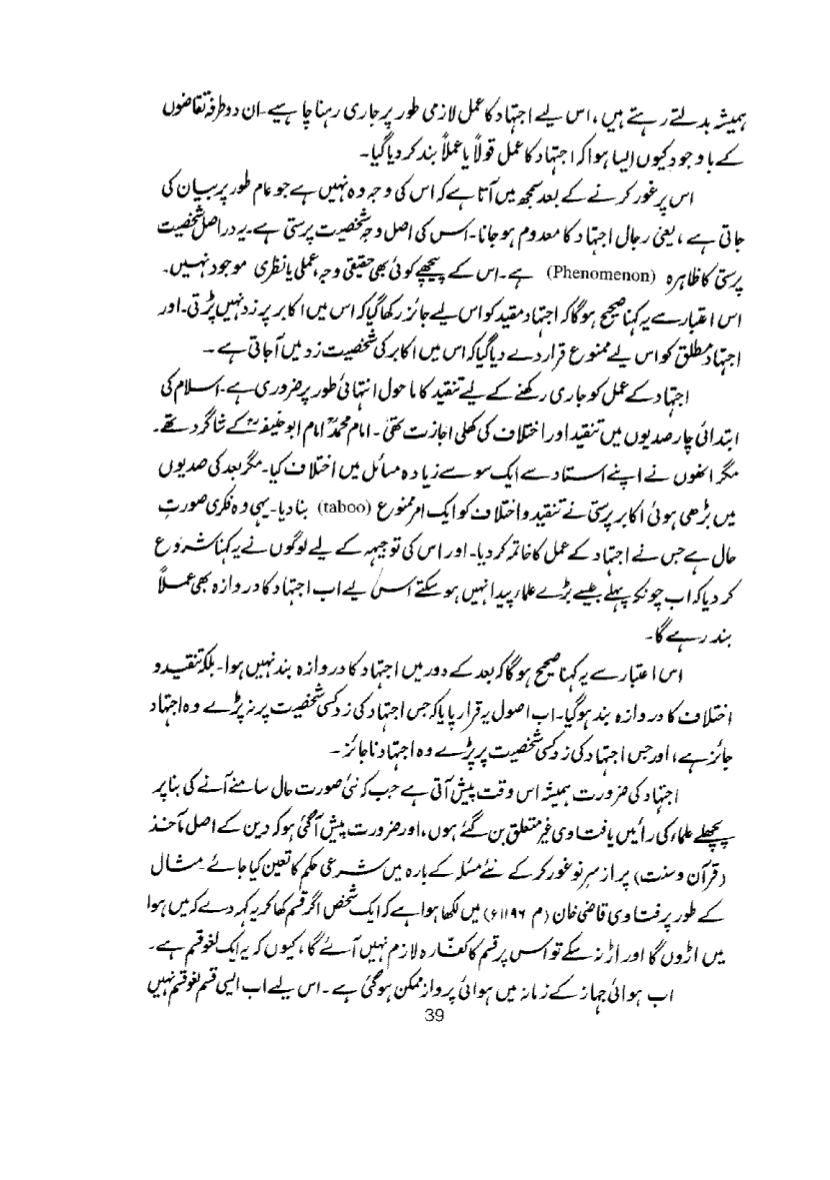 ہمیشہ بدلتے رہتے ہیں، اس لیے اجتہاد کا عمل لازمی طور پر جاری رہنا چاہیے۔ ان دو طرفہ تقاضوں
کے باوجود کیوں ایسا ہوا کہ اجتہاد کا عمل قولاً یا عملاً بند کر دیا گیا۔
اس پر غور کرنے کے بعد سمجھ میں آتا ہے کہ اس کی وجہ وہ نہیں ہے جو عام طور پر بیان کی
جاتی ہے، یعنی رجال اجتہاد کا معدوم ہو جانا۔ اس کی اصل وجہ شخصیت پرستی ہے۔ یہ دراصل شخصیت
پرستی کا ظاہرہ (Phenomenon) ہے۔ اس کے پیچھے کوئی بھی حقیقی وجہ، عملی یا نظری موجود نہیں۔
اس اعتبار سے یہ کہنا صحیح ہوگا کہ اجتہاد مقید کو اس لیے جائز رکھا گیا کہ اس میں اکابر پر زد نہیں پڑتی۔ اور
اجتہاد مطلق کو اس لیے ممنوع قرار دے دیا گیا کہ اس میں اکابر کی شخصیت زد میں آجاتی ہے۔
اجتہاد کے عمل کو جاری رکھنے کے لیے تنقید کا ماحول انتہائی طور پر ضروری ہے۔ اسلام کی
ابتدائی چار صدیوں میں تنقید اور اختلاف کی کھلی اجازت تھی۔ امام محمدؒ امام ابو حنیفہؒ کے شاگرد تھے۔
مگر انھوں نے اپنے استاد سے ایک سو سے زیادہ مسائل میں اختلاف کیا۔ مگر بعد کی صدیوں
میں بڑھی ہوئی اکابر پرستی نے تنقید و اختلاف کو ایک امر ممنوع (taboo) بنا دیا۔ یہی وہ فکری صورتِ
حال ہے جس نے اجتہاد کے عمل کا خاتمہ کر دیا۔ اور اس کی توجیہہ کے لیے لوگوں نے یہ کہنا شروع
کر دیا کہ اب چونکہ پہلے جیسے بڑے علماء پیدا نہیں ہو سکتے اس لیے اب اجتہاد کا دروازہ بھی عملاً
بند رہے گا۔
اس اعتبار سے یہ کہنا صحیح ہوگا کہ بعد کے دور میں اجتہاد کا دروازہ بند نہیں ہوا۔ بلکہ تنقید و
اختلاف کا دروازہ بند ہو گیا۔ اب اصول یہ قرار پایا کہ جس اجتہاد کی زد کسی شخصیت پر نہ پڑے وہ اجتہاد
جائز ہے، اور جس اجتہاد کی زد کسی شخصیت پر پڑے وہ اجتہاد ناجائز۔
اجتہاد کی ضرورت ہمیشہ اس وقت پیش آتی ہے جب کہ نئی صورت حال سامنے آنے کی بنا پر
پچھلے علماء کی رائیں یا فتاویٰ غیر متعلق بن گئے ہوں، اور ضرورت پیش آگئی ہو کہ دین کے اصل مآخذ
(قرآن و سنت) پر از سرِ نو غور کر کے نئے مسئلہ کے بارہ میں شرعی حکم کا تعین کیا جائے۔ مثال
کے طور پر فتاویٰ قاضی خان (م ۱۱۹۶ء) میں لکھا ہوا ہے کہ ایک شخص اگر قسم کھا کر یہ کہہ دے کہ میں ہوا
میں اڑوں گا اور اڑ نہ سکے تو اس پر قسم کا کفارہ لازم نہیں آئے گا، کیوں کہ یہ ایک لغو قسم ہے۔
اب ہوائی جہاز کے زمانہ میں ہوائی پرواز ممکن ہو گئی ہے۔ اس لیے اب ایسی قسم لغو قسم نہیں
39